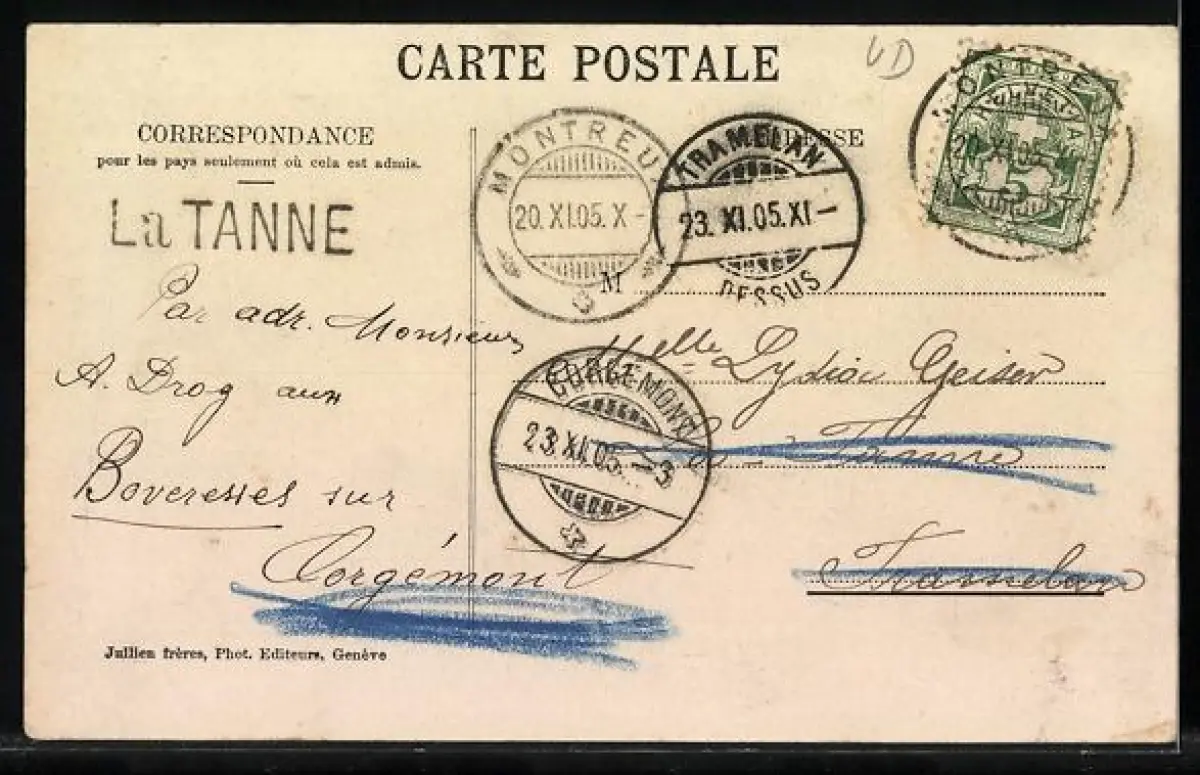 CARTE POSTALE
VD
CORRESPONDANCE
pour les pays seulement où cela est admis.
ADRESSE
La TANNE
MONTREUX
20.XI.05.X-
TRAMELAN
23.XI.05.XI-
DESSUS
MONTREUX
20.XI.05.
5
M
Par adr. Monsieur
A. Droz aux
Boveresses sur
Corgémont
CORGÉMONT
23.XI.05.-3
Melle Lydia Geiser
La Tanne
Tramelan
Jullien frères, Phot. Editeurs, Genève